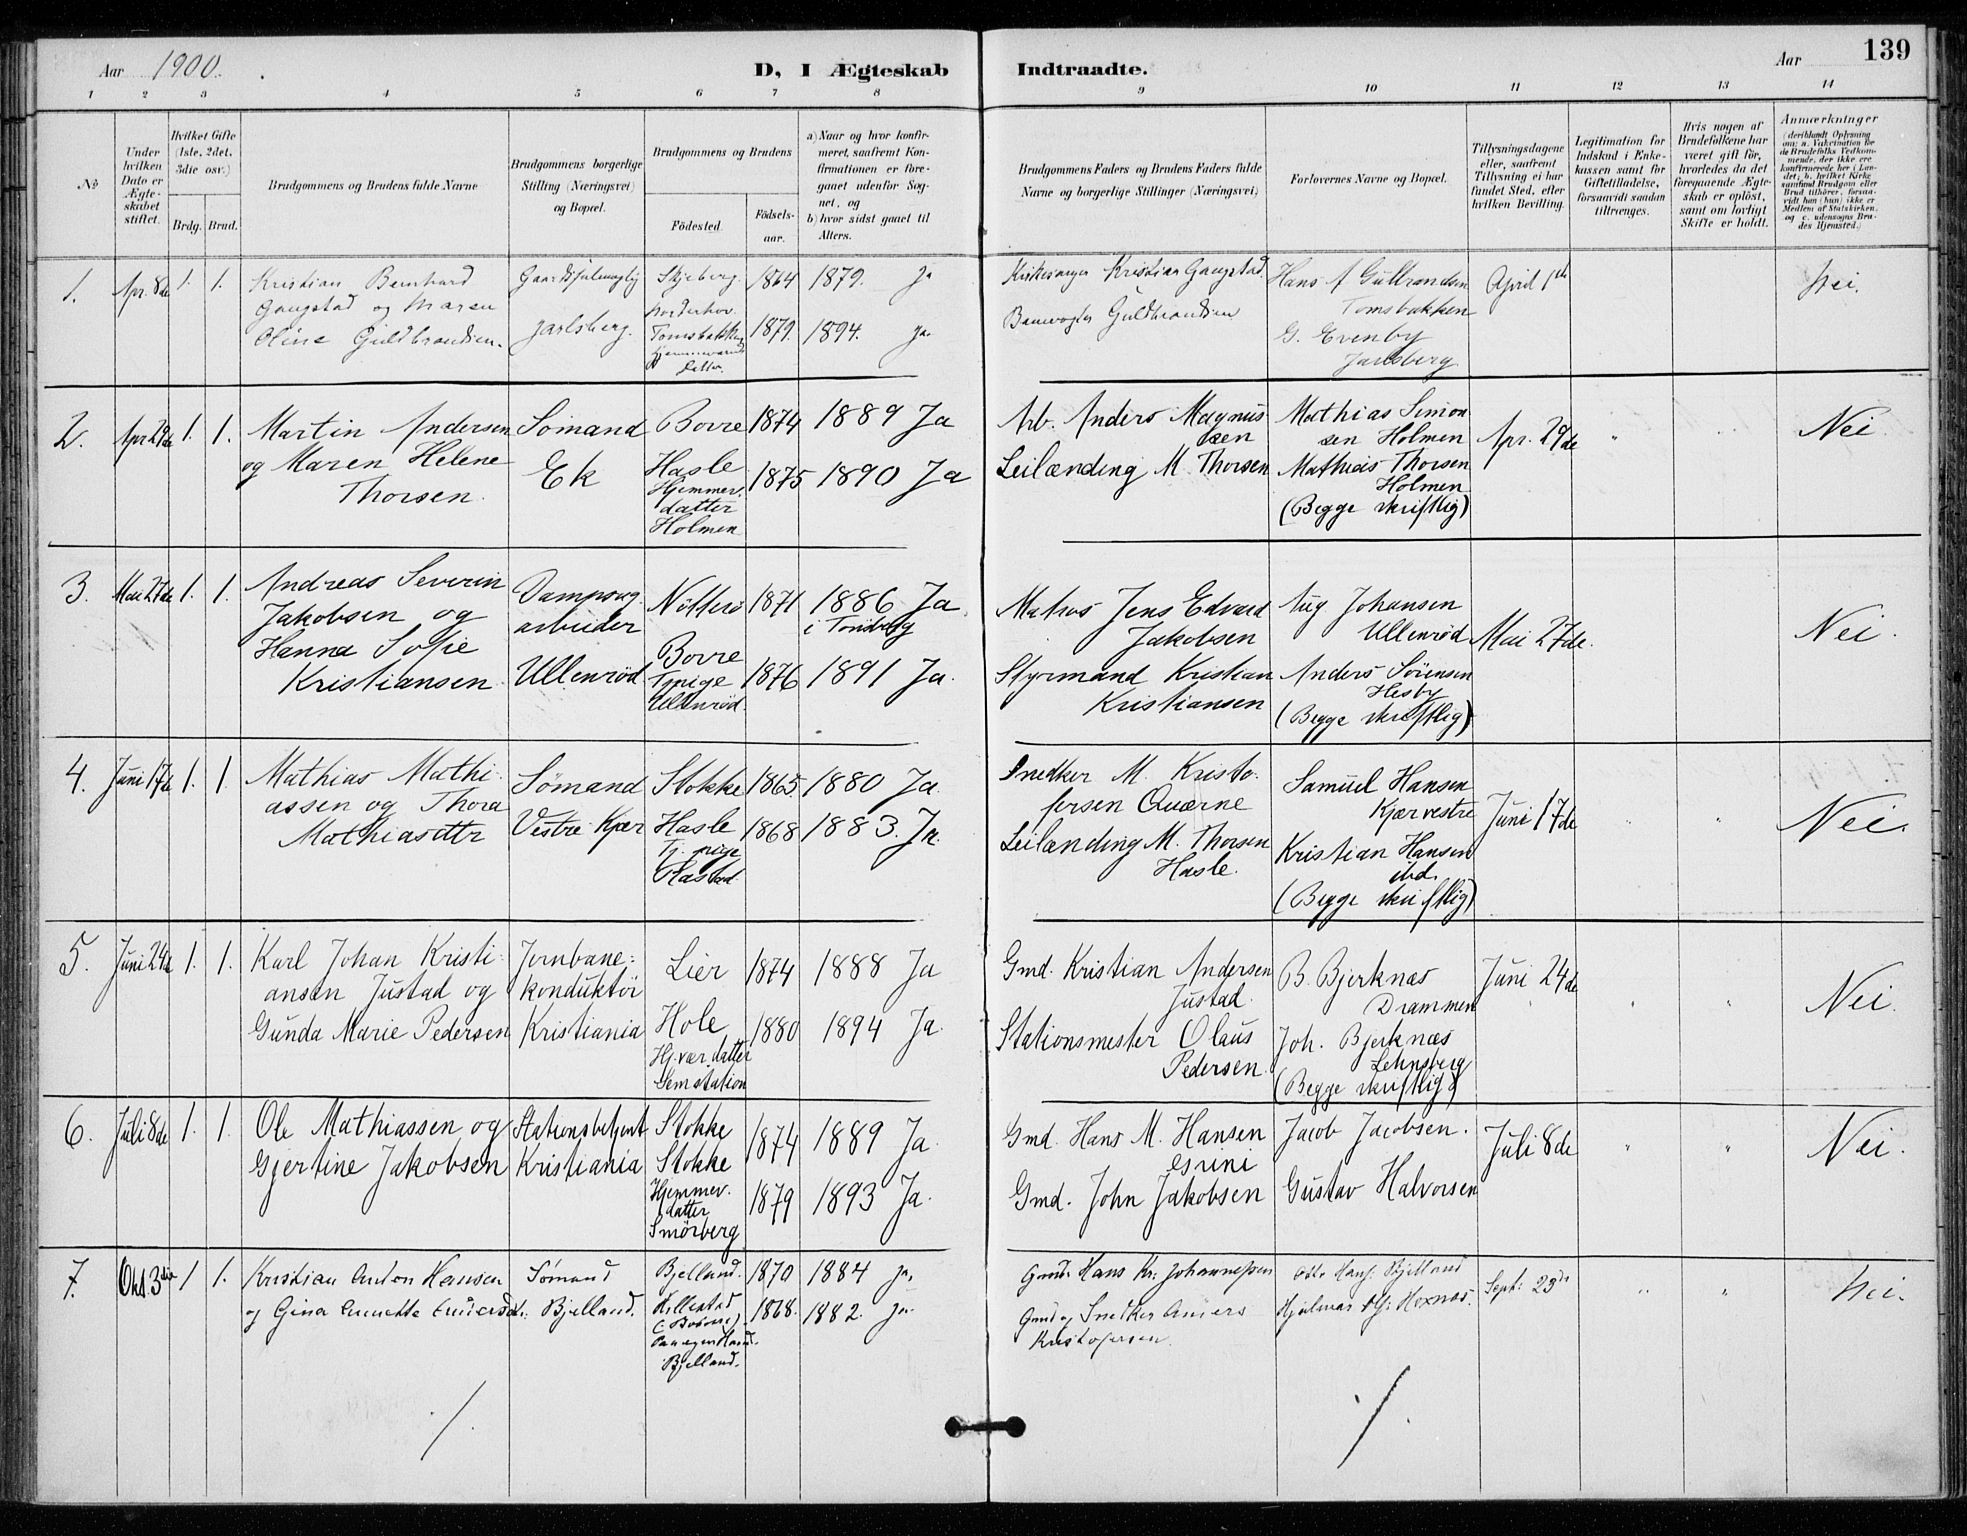 Aar 1900.
D, I Ægteskab
Indtraadte.
Aar
139
1 2 3 4 5 6 7 8 9 10 11 12 13 14
No
Under
hvilken
Dato er
Ægte-
skabet
stiftet.
Hvilket Gifte
(1ste, 2det,
3die osv.)
Brdg. Brud.
Brudgommens og Brudens fulde Navne
Brudgommens borgerlige
Stilling (Næringsvei)
og Bopæl.
Brudgommens og Brudens
Födested.
Födsels-
aar.
a) Naar og hvor konfir-
meret, saafremt Kon-
firmationen er fore-
gaaet udenfor Sog-
net, og
b) hvor sidst gaaet til
Alters.
Brudgommens Faders og Brudens Faders fulde
Navne og borgerlige Stillinger (Næringsvei)
Forlovernes Navne og Bopæl.
Tillysningsdagene
eller, saafremt
Tillysning ei har
fundet Sted, efter
hvilken Bevilling.
Legitimation for
Indskud i Enke-
kassen samt for
Giftetilladelse,
forsaavidt saadan
tiltrænges.
Hvis nogen af
Brudefolkene har
været gift för,
hvorledes da det
foregaaende Ægte-
skab er oplöst,
samt om lovligt
Skifte er holdt.
Anmærkninger
(deriblandt Oplysning
om: a. Vakcination for
de Brudefolks Vedkom-
mende, der ikke ere
konfirmerede her i Lan-
det; b. hvilket Kirke
samfund Brudgom eller
Brud tilhörer, forsaa-
vidt han (hun) ikke er
Medlem af Statskirken,
og c. udensogns Bru-
des Hjemsted.)
1. Apr. 8de 1. 1.
Kristian Bernhard
Gaugstad og Maren
Oline Guldbrandsen.
Jarlsberg.
Skjeberg 1864 1879. Ja
Norderhov.
1879. 1894. Ja.
Kirkesanger Kristian Gaugstad.
Banevogter Guldbrandsen
Hans A Gulbrandsen
Tomsbakken
G. Evenby
Jarlsberg
April 1ste
Nei.
2. Apr 29de 1. 1.
Martin Andersen
og Maren Helene
Thorsen.
Sømand
Ek
Borre 1874 1889 Ja
Hasle 1875 1890 Ja
Hjemmev.
datter
Holmen
Arb. Anders Magnus
sen
Leilænding M. Thorsen
Mathias Simon
sen Holmen
Mathias Thorsen
Holmen
(Begge skriftlig)
Apr. 29de
"
Nei.
3. Mai 27de 1. 1.
Andreas Severin
Jakobsen og
Hanna Sofie
Kristiansen
Dampsag
arbeider
Ullenrød
Nøtterø 1871 1886 Ja
i Tønsberg
Borre 1876 1891 Ja.
Tj.pige
Ullenrød.
Matros Jens Edvard
Jakobsen
Styrmand Kristian
Kristiansen
Aug Johansen
Ullenrød
Anders Sørensen
Hesby
(Begge skriftlig)
Mai 27de.
Nei.
4. Juni 17de 1. 1.
Mathias Mathi-
assen og Thora
Mathiasdtr
Sømand
Vestre Kjær
Stokke 1865 1880 Ja.
Hasle 1868 1883. Ja.
Tj. pige
Snedker M. Kristo-
fersen Quærne
Leilænding M. Thorsen
Hasle.
Samuel Hansen
Kjær vestre
Kristian Hansen
ibd.
(Begge skriftlig)
Juni 17de
" "
Nei.
5. Juni 24de 1. 1.
Karl Johan Kristi-
ansen Justad og
Gunda Marie Pedersen
Jernbane-
konduktör
Kristiania
Lier 1874 1888 Ja
Hole 1880 1894 Ja.
Hj.vær.datter
Sem station
Gmd. Kristian Andersen
Justad.
Stationsmester Olaus
Pedersen.
B. Bjerknæs
Drammen
Joh. Bjerknæs
Lehnsberg
(Begge skriftlig)
Juni 24de
" "
Nei.
6. Juli 8de 1. 1.
Ole Mathiassen og
Gjertine Jakobsen
Stationsbetjent
Kristiania
Stokke 1874 1889 Ja.
Stokke
Hjemmev. 1879 1893 Ja.
datter
Smørberg
Gmd. Hans M. Hansen
Gmd. John Jakobsen
Jacob Jacobsen.
Gustav Halvorsen
Juli 8de
" "
Nei.
7. Okt. 3die 1 1.
Kristian Anton Hansen
og Gina Annette Andersdtr.
Sømand
Bjelland.
Bjelland. 1870 1884 Ja,
Hillestad 1868. 1882. Ja.
Bjelland.
Gmd. Hans Kr. Johannessen
Gmd og Snedker Anders
Kristofersen
Otto Hans. Bjelland
Sept. 23de
" "
Nei.